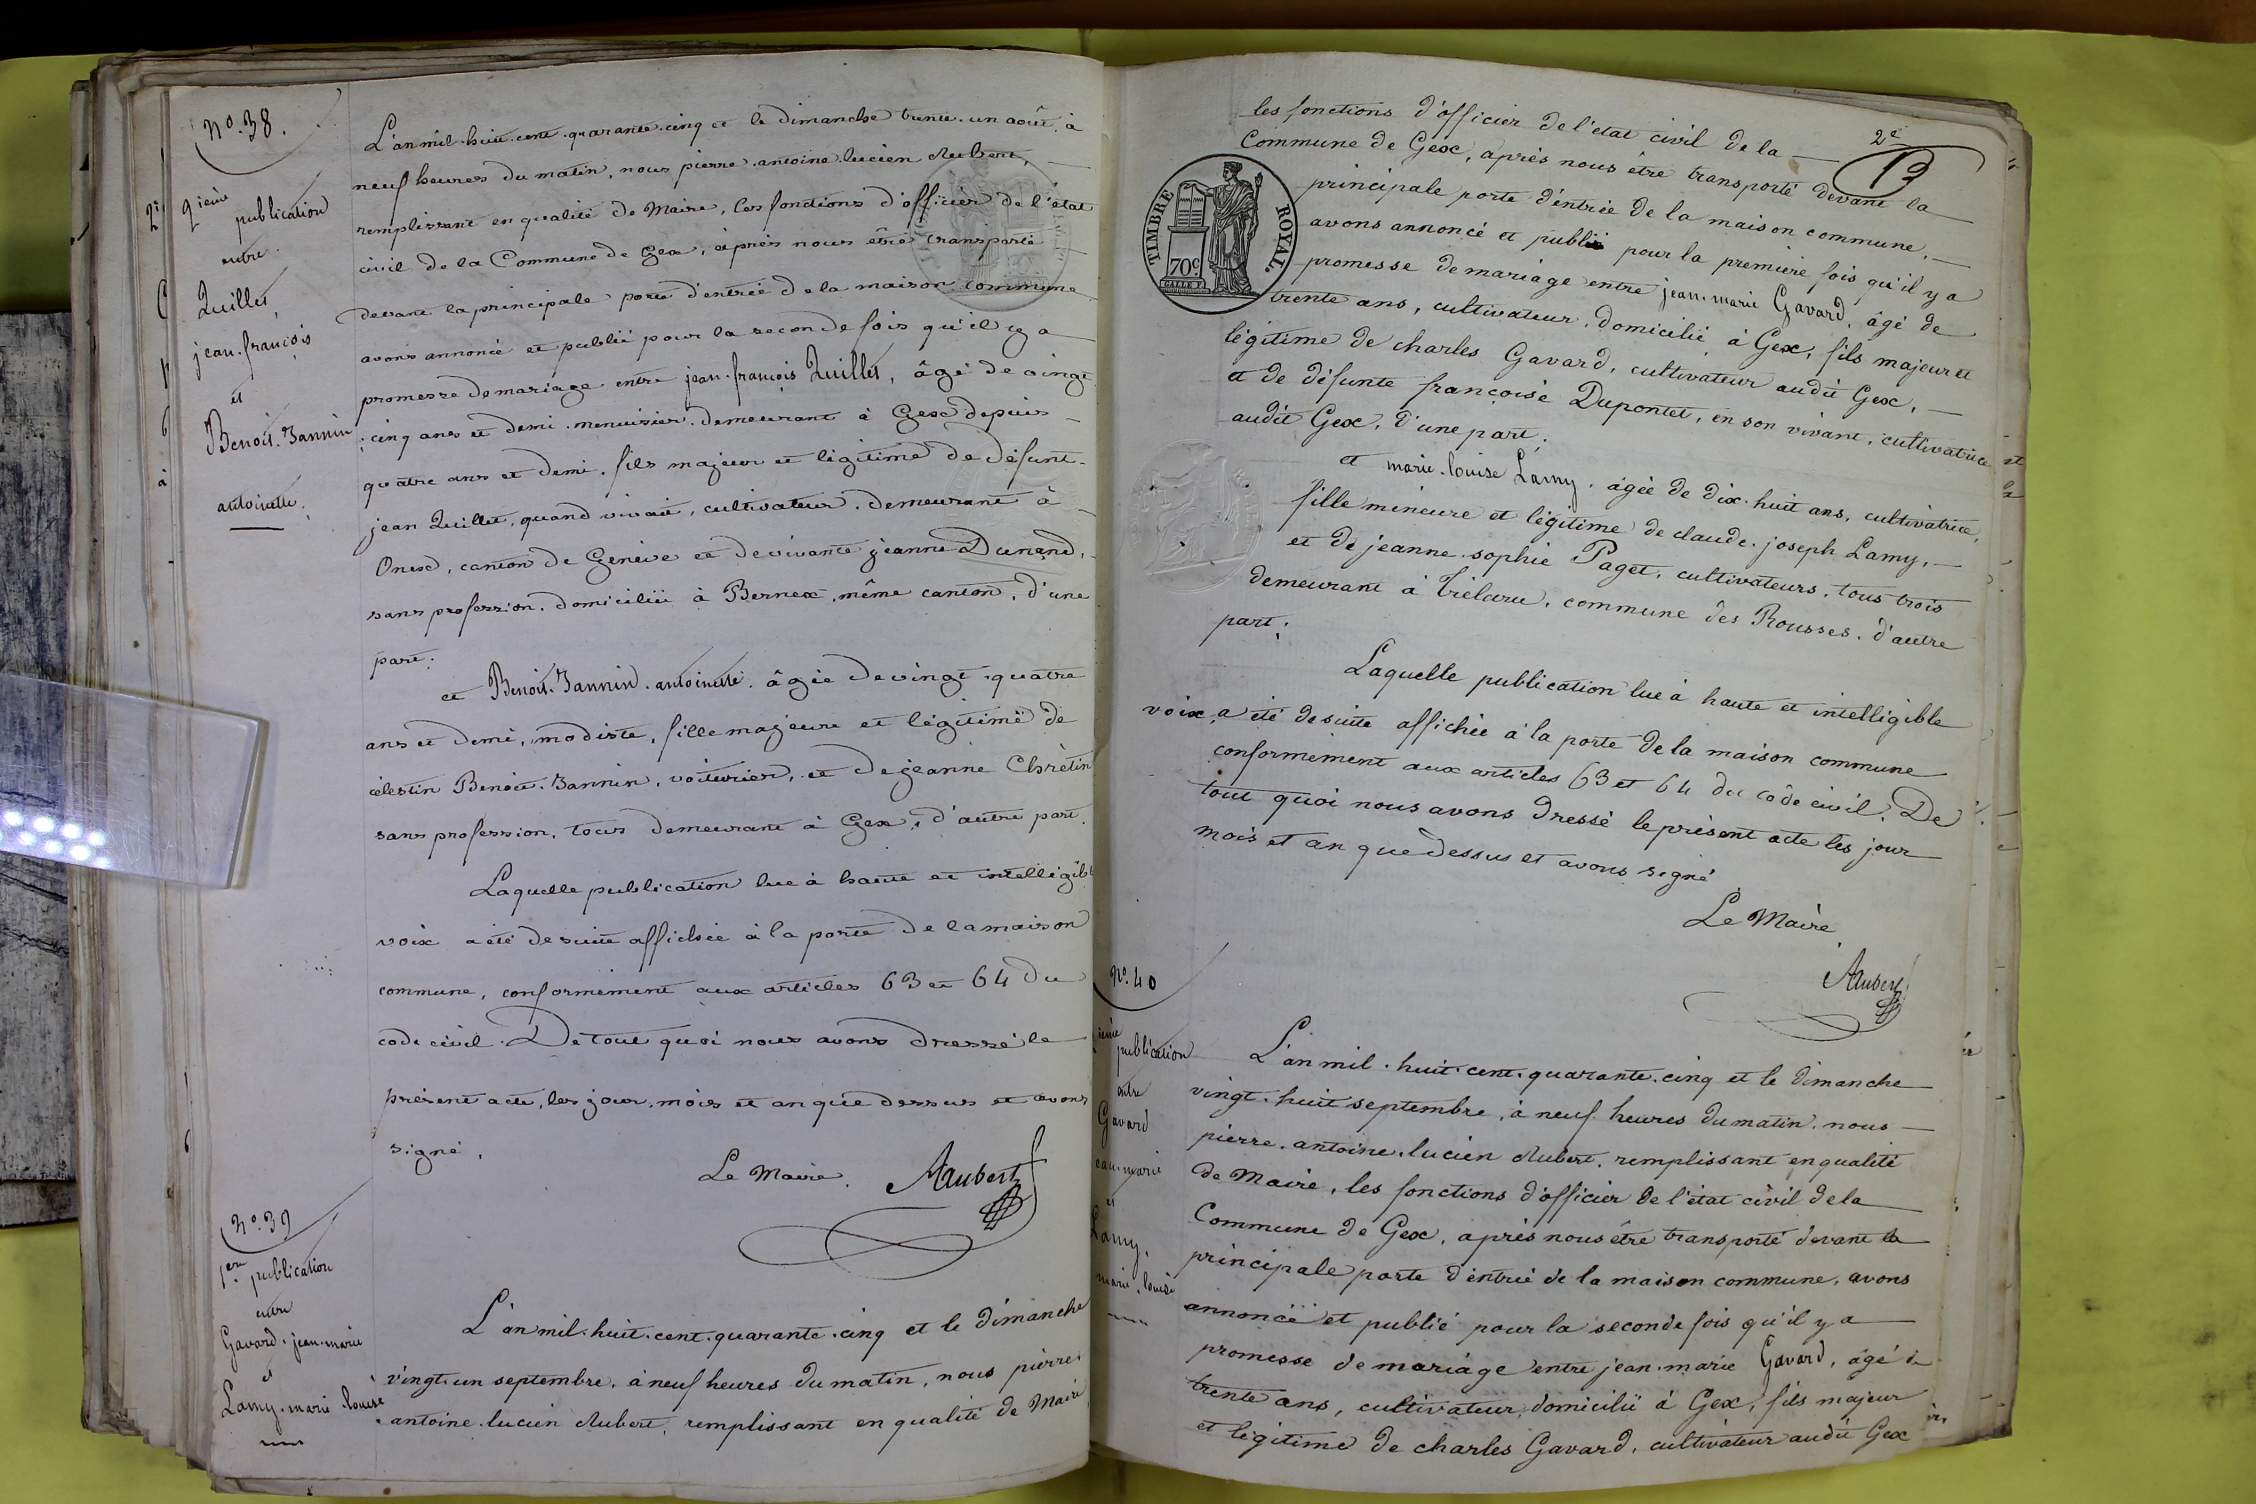 N.º 38.
2ième
publication
entre
Quillet,
jean-françois
et
Benoit-Jannin
antoinette.
L'an mil-huit-cent-quarante-cinq et le dimanche trente-un août, à
neuf heures du matin, nous pierre-antoine-lucien Aubert,
remplissant en qualité de Maire, les fonctions d'officier de l'état
civil de la Commune de Gex, après nous être transporté
devant la principale porte d'entrée de la maison commune
avons annoncé et publié pour la seconde fois qu'il y a
promesse de mariage entre jean-françois Quillet, âgé de vingt
cinq ans et demi, menuisier, demeurant à Gex depuis
quatre ans et demi, fils majeur et légitime de défunt
jean Quillet, quand vivait, cultivateur, demeurant à
Onex, canton de Genève et de vivante jeanne Dunand,
sans profession, domiciliée à Bernex, même canton, d'une
part;
et Benoit-Jannin-antoinette, âgée de vingt-quatre
ans et demi, modiste, fille majeure et légitime de
célestin Benoit-Jannin, voiturier, et de jeanne Chrétin
sans profession, tous demeurant à Gex, d'autre part.
Laquelle publication lue à haute et intelligible
voix a été de suite affichée à la porte de la maison
commune, conformément aux articles 63 et 64 du
code civil. De tout quoi nous avons dressé le
présent acte, les jour, mois et an que dessus et avons
signé.
Le Maire.
Aubert
N.º 39
1ère publication
entre
Gavard-jean-marie
et
Lamy-marie-louise
L'an mil-huit-cent-quarante-cinq et le dimanche
vingt-un septembre, à neuf heures du matin, nous pierre
antoine-lucien Aubert, remplissant en qualité de Maire
2e
13
TIMBRE ROYAL.
70c
les fonctions d'officier de l'état civil de la
Commune de Gex, après nous être transporté devant la
principale porte d'entrée de la maison commune,
avons annoncé et publié pour la première fois qu'il y a
promesse de mariage entre jean-marie Gavard, âgé de
trente ans, cultivateur, domicilié à Gex, fils majeur et
légitime de charles Gavard, cultivateur audit Gex,
et de défunte françoise Dupontet, en son vivant, cultivatrice
audit Gex, d'une part;
et marie-louise Lamy, âgée de dix-huit ans, cultivatrice,
fille mineure et légitime de claude-joseph Lamy,
et de jeanne-sophie Paget, cultivateurs, tous trois
demeurant à Trélarce, commune des Rousses, d'autre
part;
Laquelle publication lue à haute et intelligible
voix, a été de suite affichée à la porte de la maison commune
conformément aux articles 63 et 64 du code civil. De
tout quoi nous avons dressé le présent acte les jour
mois et an que dessus et avons signé
Le Maire
Aubert
N.º 40
ième
publication
entre
Gavard
ean-marie
et
Lamy,
marie-louise
L'an mil-huit-cent-quarante-cinq et le dimanche
vingt-huit septembre, à neuf heures du matin, nous
pierre-antoine-lucien Aubert, remplissant en qualité
de Maire, les fonctions d'officier de l'état civil de la
Commune de Gex, après nous être transporté devant la
principale porte d'entrée de la maison commune, avons
annoncé et publié pour la seconde fois qu'il y a
promesse de mariage entre jean-marie Gavard, âgé de
trente ans, cultivateur, domicilié à Gex, fils majeur
et légitime de charles Gavard, cultivateur audit Gex